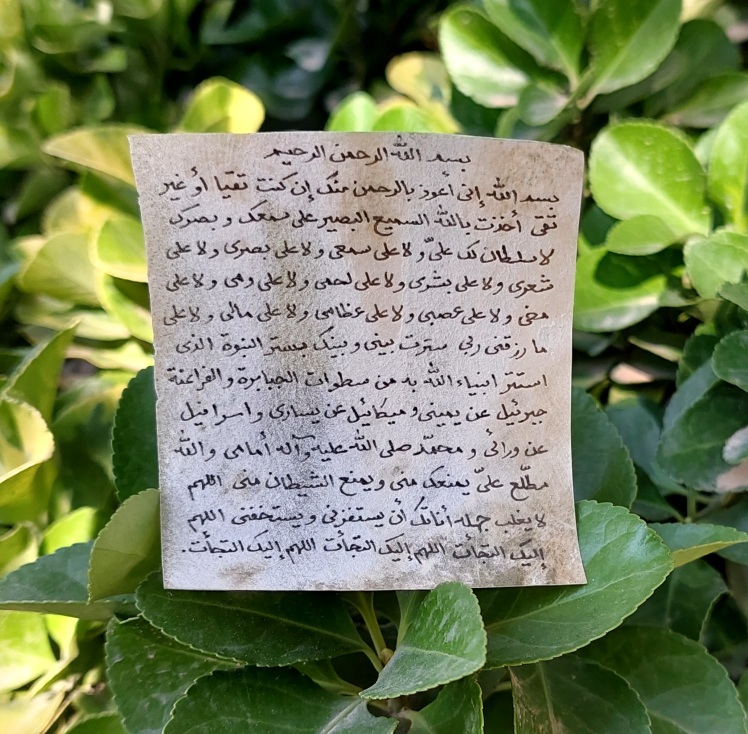 بسم الله الرحمن الرحيم
بسم الله إنى أعوذ بالرحمن منك إن كنت تقيا أو غير
تقى أخذت بالله السميع البصير على سمعك و بصرك
لا سلطان لك علىّ و لا على سمعى و لا على بصرى و لا على
شعرى و لا على بشرى و لا على لحمى و لا على دمى و لا على
مخى و لا على عصبى و لا على عظامى و لا على مالى و لا على
ما رزقنى ربى سترت بينى و بينك بستر النبوة الذى
استتر انبياء الله به من سطوات الجبابرة و الفراعنة
جبرئيل عن يمينى و ميكائيل عن يسارى و اسرافيل
عن ورائى و محمّد صلى الله عليه و آله أمامى و الله
مطّلع علىّ يمنعك منى و يمنع الشيطان منى اللهم
لا يغلب جهله أناتك أن يستفزنى و يستخفنى اللهم
إليك التجأت اللهم إليك التجأت اللهم إليك التجأت.